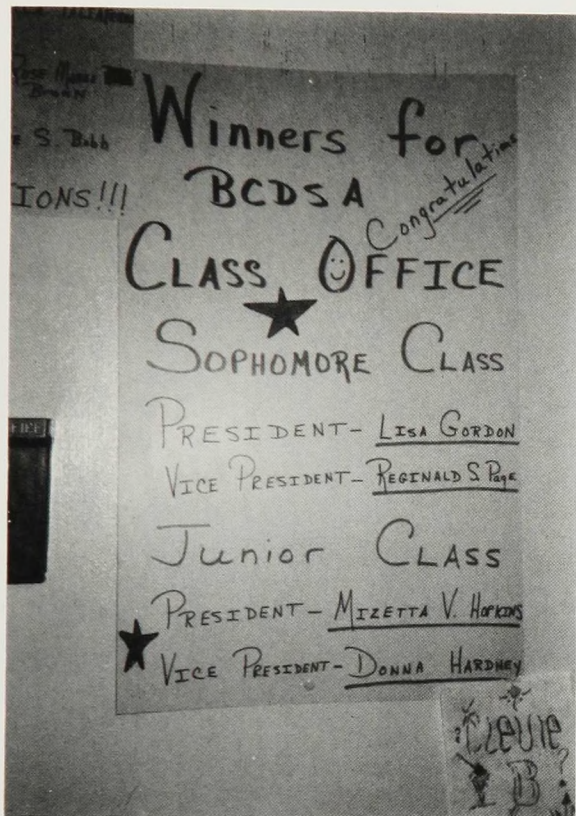 Rose Marie
Brown
S. Bobb
IONS!!!
Winners for
BCDSA
Congratulations
CLASS OFFICE
SOPHOMORE CLASS
PRESIDENT- LISA GORDON
VICE PRESIDENT- REGINALD S. Page
Junior CLASS
PRESIDENT- MIZETTA V. HOPKINS
VICE PRESIDENT- DONNA HARDNEY
B